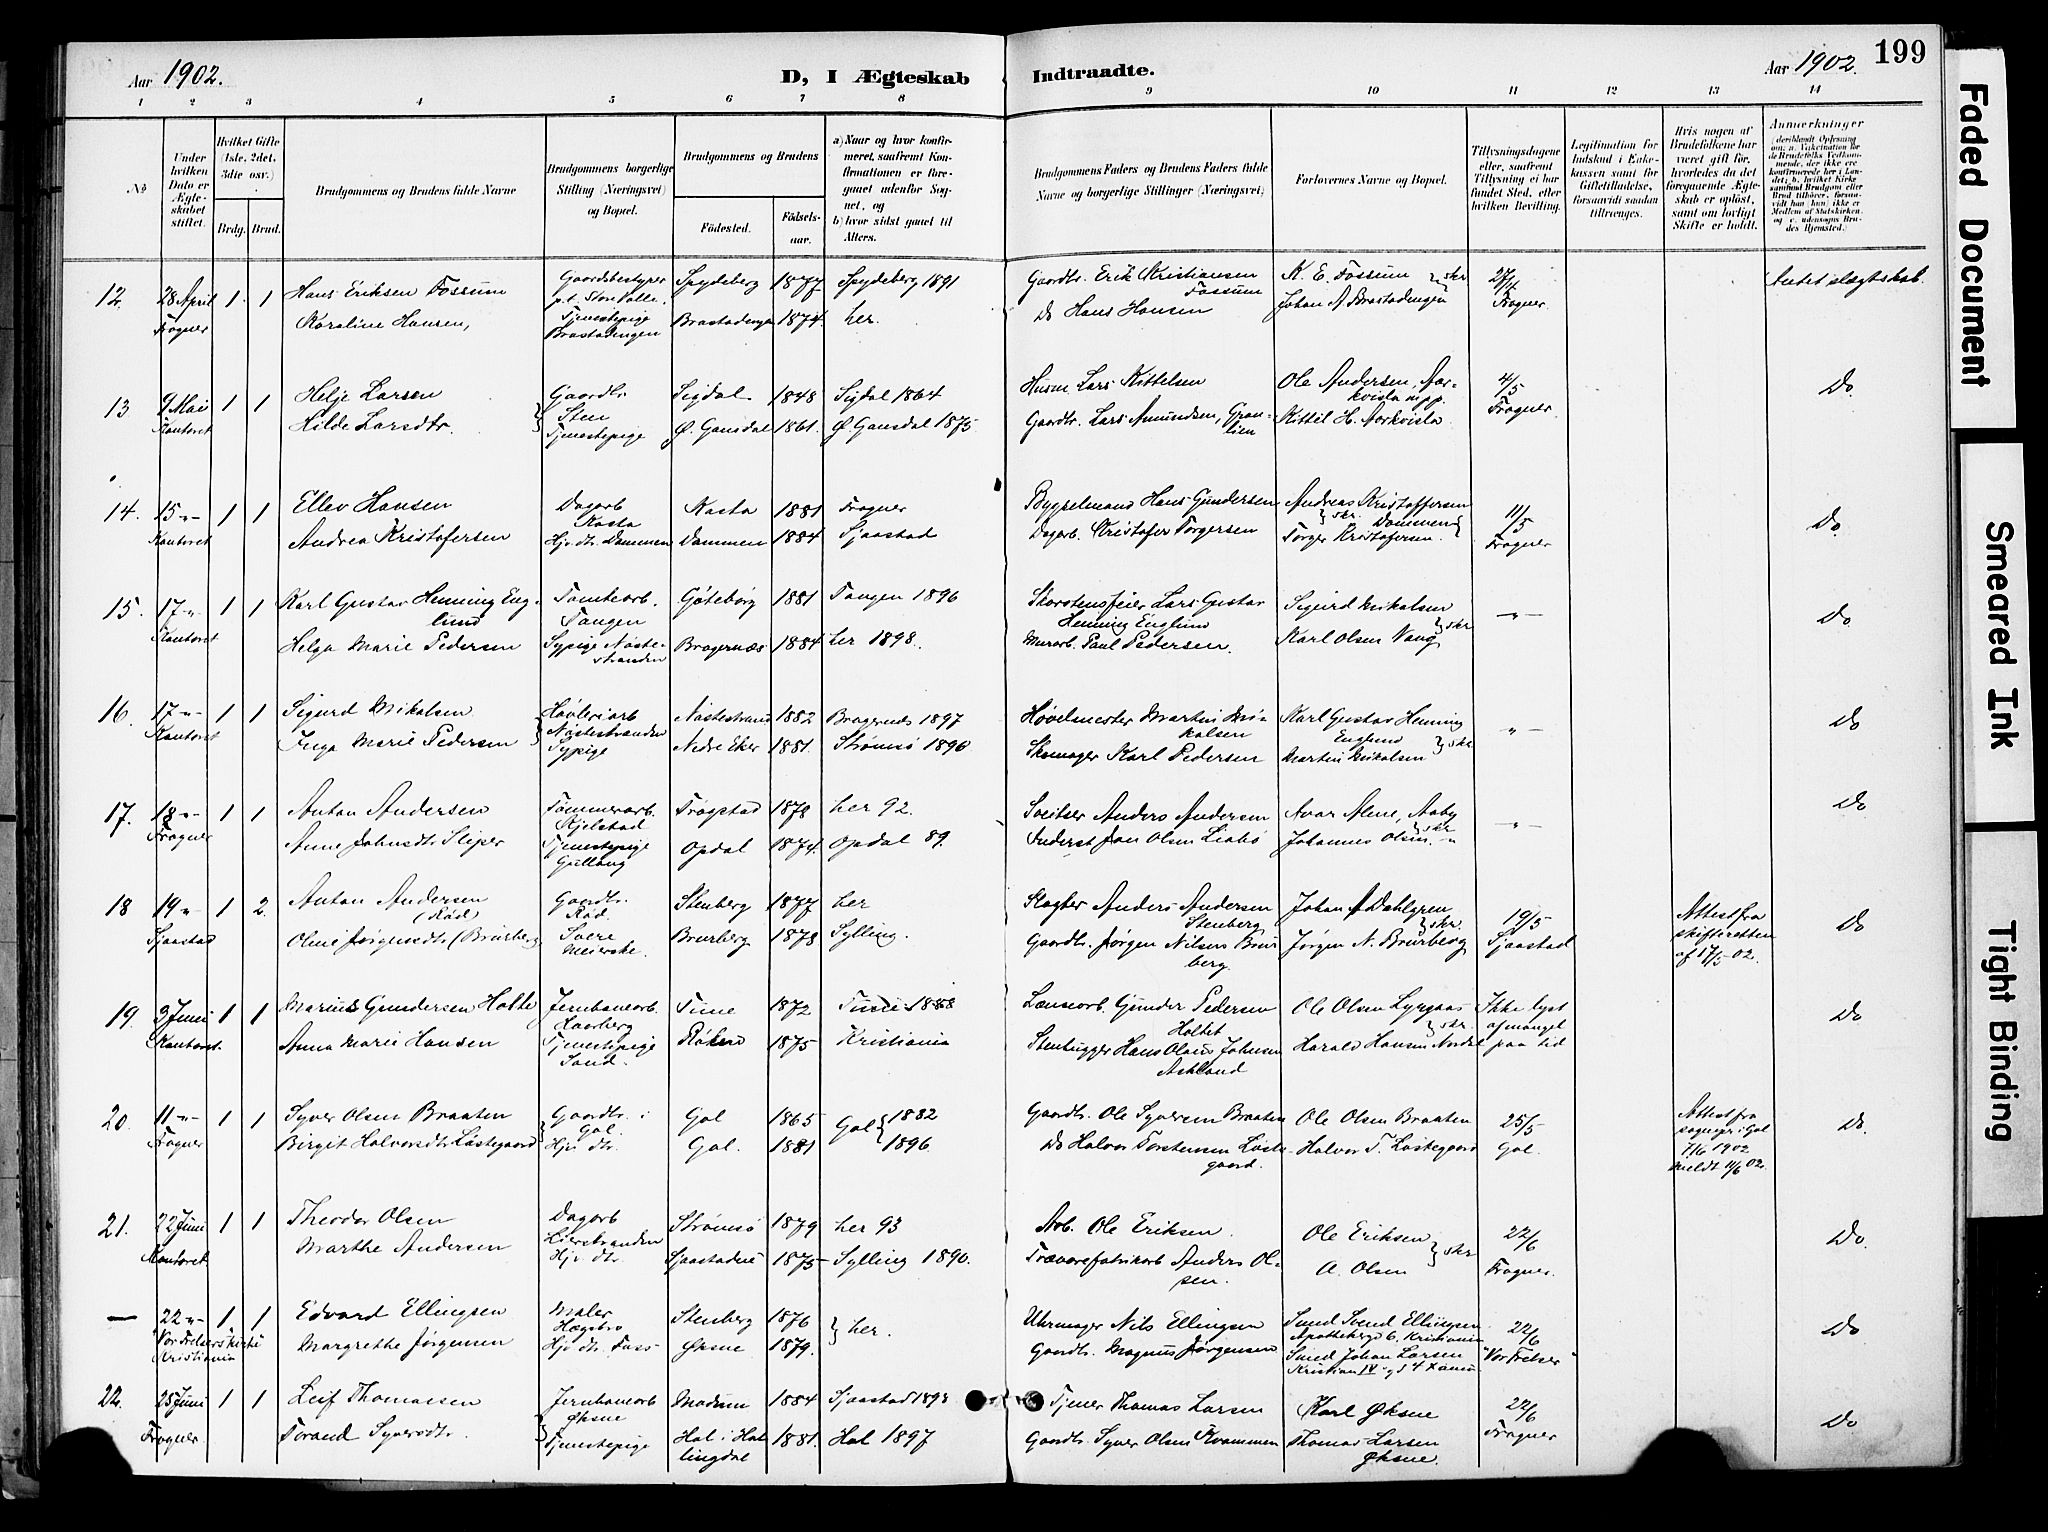 Aar 1902.
D, I Ægteskab
Indtraadte.
Aar 1902.
199
1 2 3 4 5 6 7 8 9 10 11 12 13 14
No
Under hvilken Dato er Ægteskabet stiftet.
Hvilket Gifte (1ste, 2det, 3die osv.)
Brdg. Brud.
Brudgommens og Brudens fulde Navne
Brudgommens borgerlige Stilling (Næringsvei) og Bopæl.
Brudgommens og Brudens
Fødested.
Fødselsaar.
a) Naar og hvor konfirmeret, saafremt Konfirmationen er foregaaet udenfor Sognet, og
b) hvor sidst gaaet til Alters.
Brudgommens Faders og Brudens Faders fulde Navne og borgerlige Stillinger (Næringsvei)
Forlovernes Navne og Bopæl.
Tillysningsdagene eller, saafremt Tillysning ei har fundet Sted, efter hvilken Bevilling.
Legitimation for Indskud i Enkekassen samt for Giftetilladelse, forsaavidt saadan tiltrænges.
Hvis nogen af Brudefolkene har været gift før, hvorledes da det foregaaende Ægteskab er opløst, samt om lovligt Skifte er holdt.
Anmærkninger
12. 28 April Frogner 1. 1
Hans Eriksen Fossum Gaardsbestyrer p.t. Store Valle Spydeberg 1877 Spydeberg 1891
Karoline Hansen, Tjenestepige Brastadengen Brastadengen 1874. her.
Gaardbr. Erik Kristiansen Fossum K. E. Fossum } skr 27/4 Frogner
Do Hans Hansen Johan A Brastadengen
Intet slægtskab.
13 9 Mai Kontoret 1 1
Helje Larsen Gaardbr. Sten Sigdal 1848 Sigdal 1864
Hilde Larsdtr. Tjenestepige Ø. Gausdal 1861. Ø. Gausdal 1875
Husm Lars Kittelsen Ole Andersen, Aarkvisla mpp. 4/5 Frogner. Do
Gaardbr. Lars Amundsen, Grønlien Kittil H. Aarkvisla
14. 15 -"- Kontoret 1 1
Ellev Hansen Dagarb Kasta Kasta 1881 Frogner
Andrea Kristofersen Hjv. dtr. Dammen Dammen 1884 Sjaastad
Bygselmand Hans Gundersen Andreas Kristoffersen Dammen } skr. 11/5 Frogner Do
Dagarb. Kristofer Torgersen Torger Kristofersen.
15. 17 -"- Kontoret 1 1
Karl Gustav Henning Englund Tomtearb. Tangen Göteborg 1881 Tangen 1896
Helga Marie Pedersen Sypige Nøstestranden Bragernæs 1884 her 1898.
Skorstensfeier Lars Gustav Henning Englund Sigurd Mikalsen } skr -"- Do
Murarb. Paul Pedersen. Karl Olsen Vang
16. 17 -"- Kontoret 1 1
Sigurd Mikalsen Høvleriarb Nøstestranden Nøstestrand 1882 Bragernæs 1897
Inga Marie Pedersen Sypige Nedre Eker 1881. Strømsø 1896
Høvelmester Martin Mikalsen Karl Gustav Henning Englund } skr. -"- Do
Skomager Karl Pedersen Martin Mikalsen
17. 18 -"- Frogner 1 1
Anton Andersen Tømmerarb. Kjelstad Trøgstad 1878 her 92.
Anne Johnsdtr. Sliper Tjenestepige Gullaug Opdal 1874. Opdal 89.
Sveitser Anders Andersen Avar Alme, Aaby } skr. -"- Do
Inderst Jon Olsen Liabø Johannes Olsen. "
18 19 -"- Sjaastad 1 2.
Anton Andersen (Rød) Gaardbr. Rød. Stenberg 1877 her
Oline Jørgensdtr (Brurberg) Svere Meierske. Brurberg 1878 Sylling.
Slagter Anders Andersen Stenberg Johan A Dahlgren } skr. 19/5 Sjaastad
Gaardbr. Jørgen Nilsen Brurberg. Jørgen N. Brurberg
Attest fra skifteretten af 17/5-02. Do
19. 3 Juni Kontoret 1 1
Marius Gundersen Holte Jernbanearb. Tune 1872 Tune 1888
Anna Marie Hansen Tjenestepige Sand. Røken 1875 Kristiania
Løsearb. Gunder Pedersen Holtet Ole Olsen } skr. Ikke lyst af mangel paa tid Do
Stenhugger Hans Olaus Johnsen Askland Harald Hansen
20. 11 -"- Frogner 1 1
Syver Olsen Braaten Gaardbr. i Gol. Gol 1865 Gol { 1882
Birgit Halvorsdtr. Løstegaard Hjv dtr. Gol. 1881 1896
Gaardbr. Ole Syversen Braaten Ole Olsen Braaten 25/5 Gol.
Do Halvor Torstensen Løstegaard. Halvor T. Løstegaard
Attest fra sognepr i Gol 7/6 1902 meldt 11/6 02. Do.
21. 22 Juni Kontoret 1 1
Theodor Olsen Dagarb Lierstranden Strømsø 1879 her 93
Marthe Andersen Hjv dtr. Sjaastadeie 1875 Sylling 1890.
Arb. Ole Eriksen. Ole Eriksen } skr 22/6 Frogner. Do.
Trævarefabrikarb Anders Olsen. A. Olsen
— 22 -"- "Vor Frelsers" kirke Kristiania 1 1
Edvard Ellingsen Maler Hægsbro Stenberg 1876 } her.
Margrethe Jørgensen Hjv dtr. Foss Øksne 1879.
Uhrmager Nils Ellingsen Smed Svend Ellingsen. Apothekergd 6, Kristiania 22/6 "Vor Frelser" Do
Gaardbr. Magnus Jørgensen Smed Johan Larsen Kristian IV
22. 25 Juni Frogner. 1 1
Leif Thomasen Jernbanearb Øksne Modum 1884 Sjaastad 1898
Torand Syversdtr. Tjenestepige Hol i Hallingdal 1881. Hol 1897
Tjener Thomas Larsen Karl Øksne 22/6 Frogner Do
Gaardbr. Syver Olsen Kvammen Thomas Larsen Øksne.
Faded Document
Smeared Ink
Tight Binding